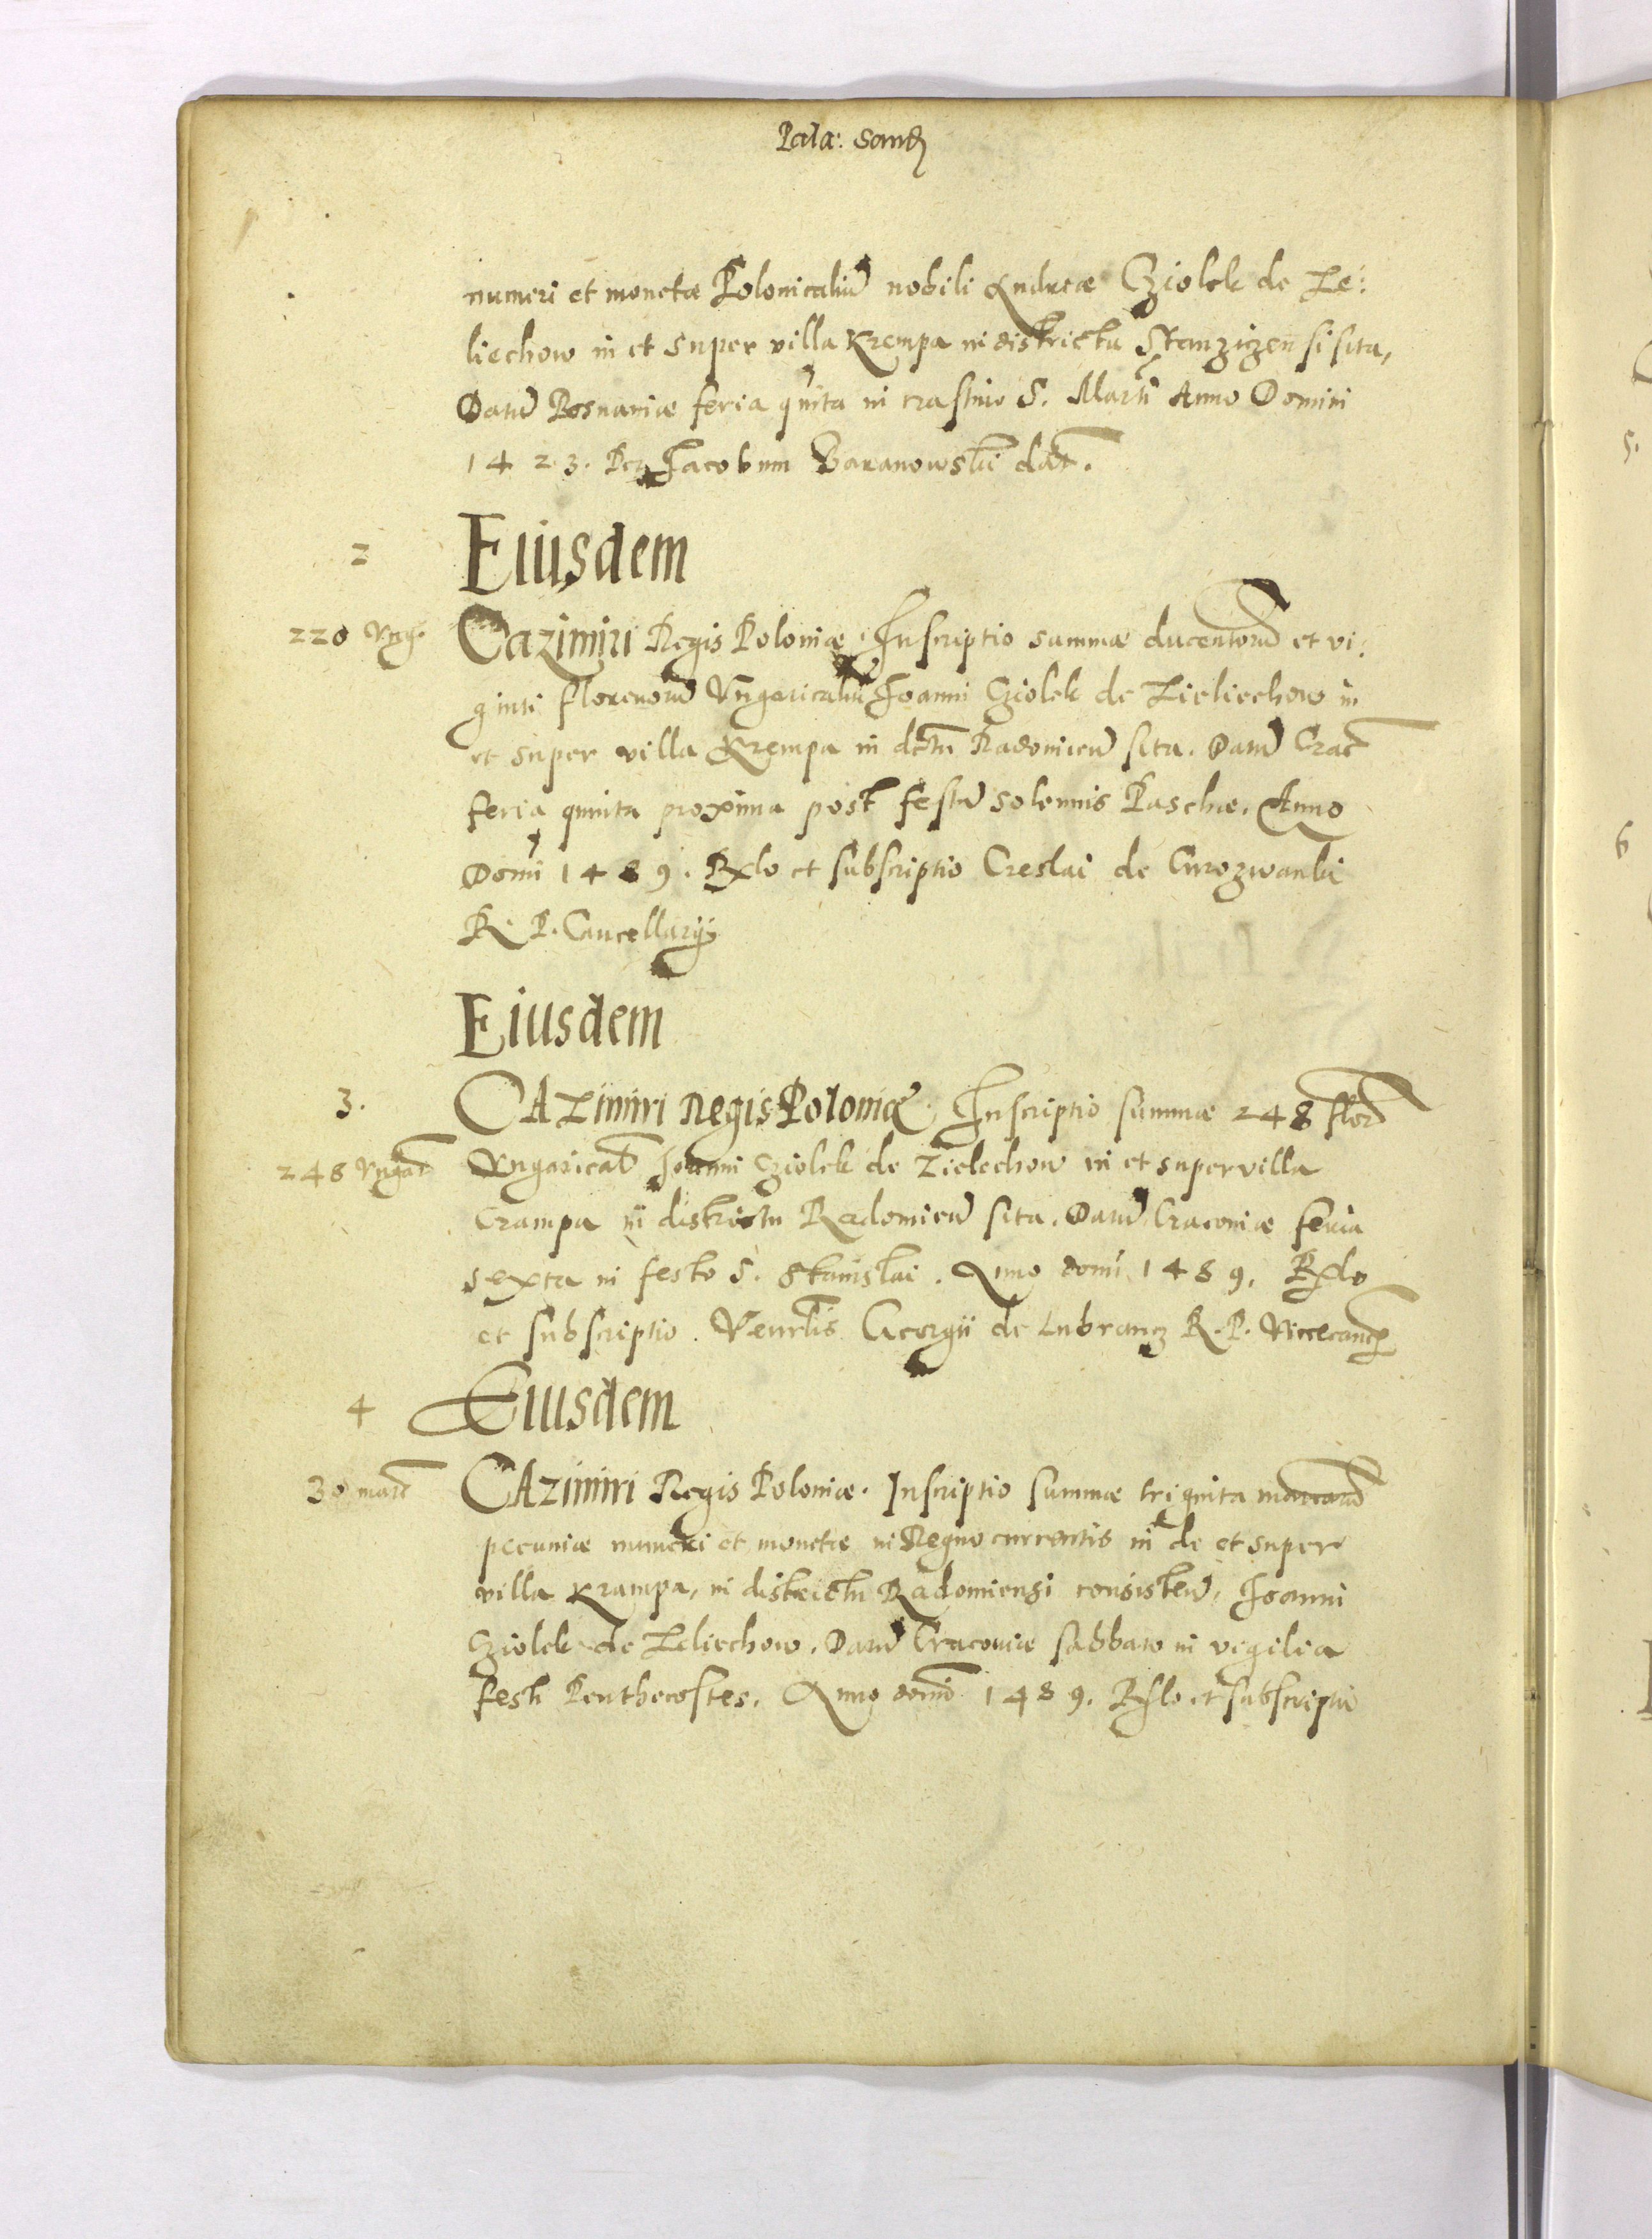 Pala: Sand
numeri et monetæ Polonicaliũ nobili Andreæ Cziolek de Ze:
liechow in et super villa Krempa in districtu Stanzizensi sita,
Datũ Posnaniæ feria quinta in crastino S. Marti Anno Domini
1423. Per Jacobum Baranowski dat.
2 Eiusdem
220 Ung. Cazimiri Regis Poloniæ. Inscriptio summæ ducentorũ et vi:
ginti florenorũ Ungaricaliũ Joanni Cziolek de Zieliechow in
et super villa Krempa in dctu Radomieñ sita. Datũ Crac
feria quinta proxima post festũ solennis Paschæ. Anno
Domi 1489. Rlo et subscriptio Creslai de Curozwanki
R. P. Cancellarij
Eiusdem
3. CAZimiri Regis Poloniæ. Inscriptio summæ 248 flor
248 Ungar Ungarical Joanni Cziolek de Zielechow in et super villa
Crampa in districtu Radomieñ sita. Datũ Cracoviæ feria
sexta in festo S. Stanislai. Anno domi 1489. Rlo
et subscriptio. Venrlis Georgii de Lubrancz R. P. Vicecanc
4 Eiusdem
30 marc CAZimiri Regis Poloniæ. Inscriptio summæ triginta marcarũ
pecuniæ numeri et monetæ in Regno currentis in de et super
villa Krampa, in districtu Radomiensi consisteñ, Joanni
Cziolek de Zeliechow. Datũ Cracoviæ sabbato in vigilia
festi Penthecostes. Anno domi 1489. Rlo et subscriptio